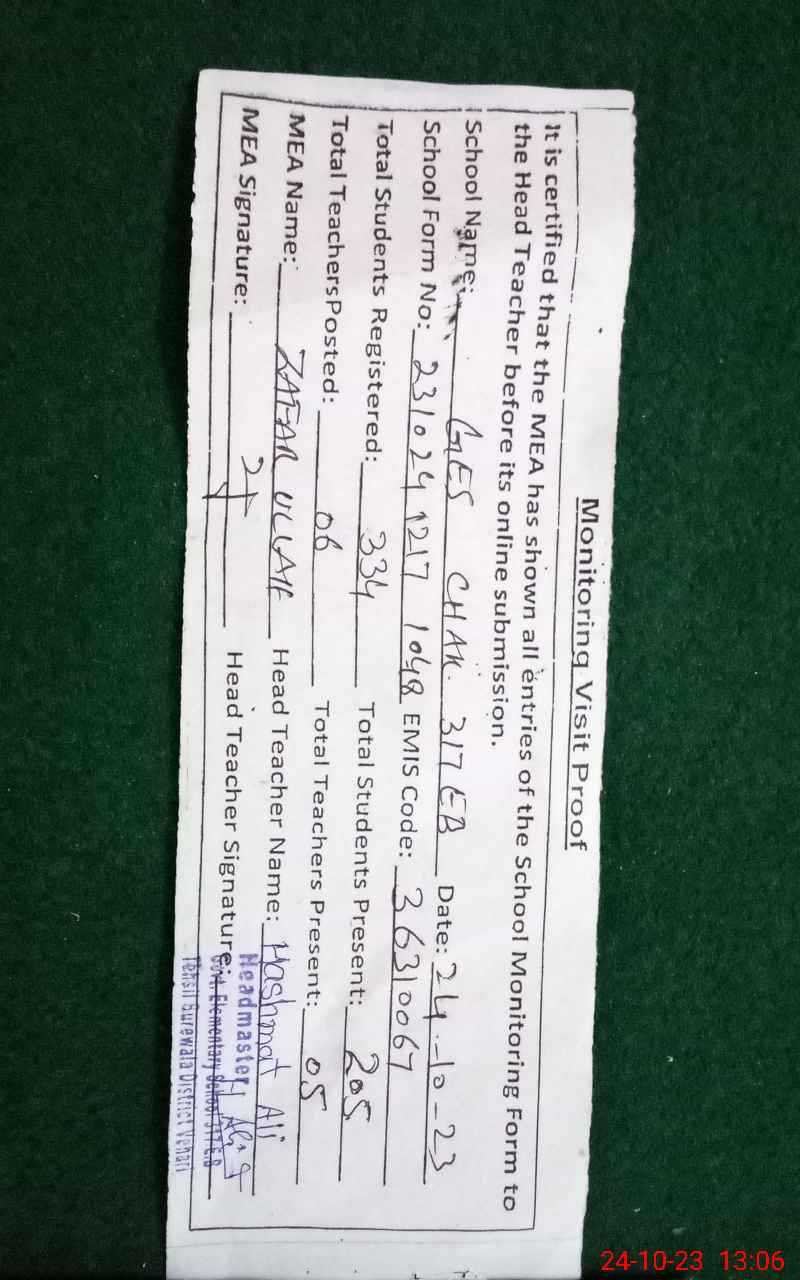 Monitoring Visit Proof
It is certified that the MEA has shown all entries of the School Monitoring Form to
the Head Teacher before its online submission.
School Name: GES CHAK 317 EB Date: 24-10-23
School Form No: 231024 1217 1048 EMIS Code: 36310067
Total Students Registered: 334 Total Students Present: 205
Total TeachersPosted: 06 Total Teachers Present: 05
MEA Name: ZAFAR ULLAH Head Teacher Name: Hashmat Ali
MEA Signature: Head Teacher Signature:
Headmaster
Govt. Elementary School 317 E.B
Tehsil Burewala District Vehari
24-10-23 13:06